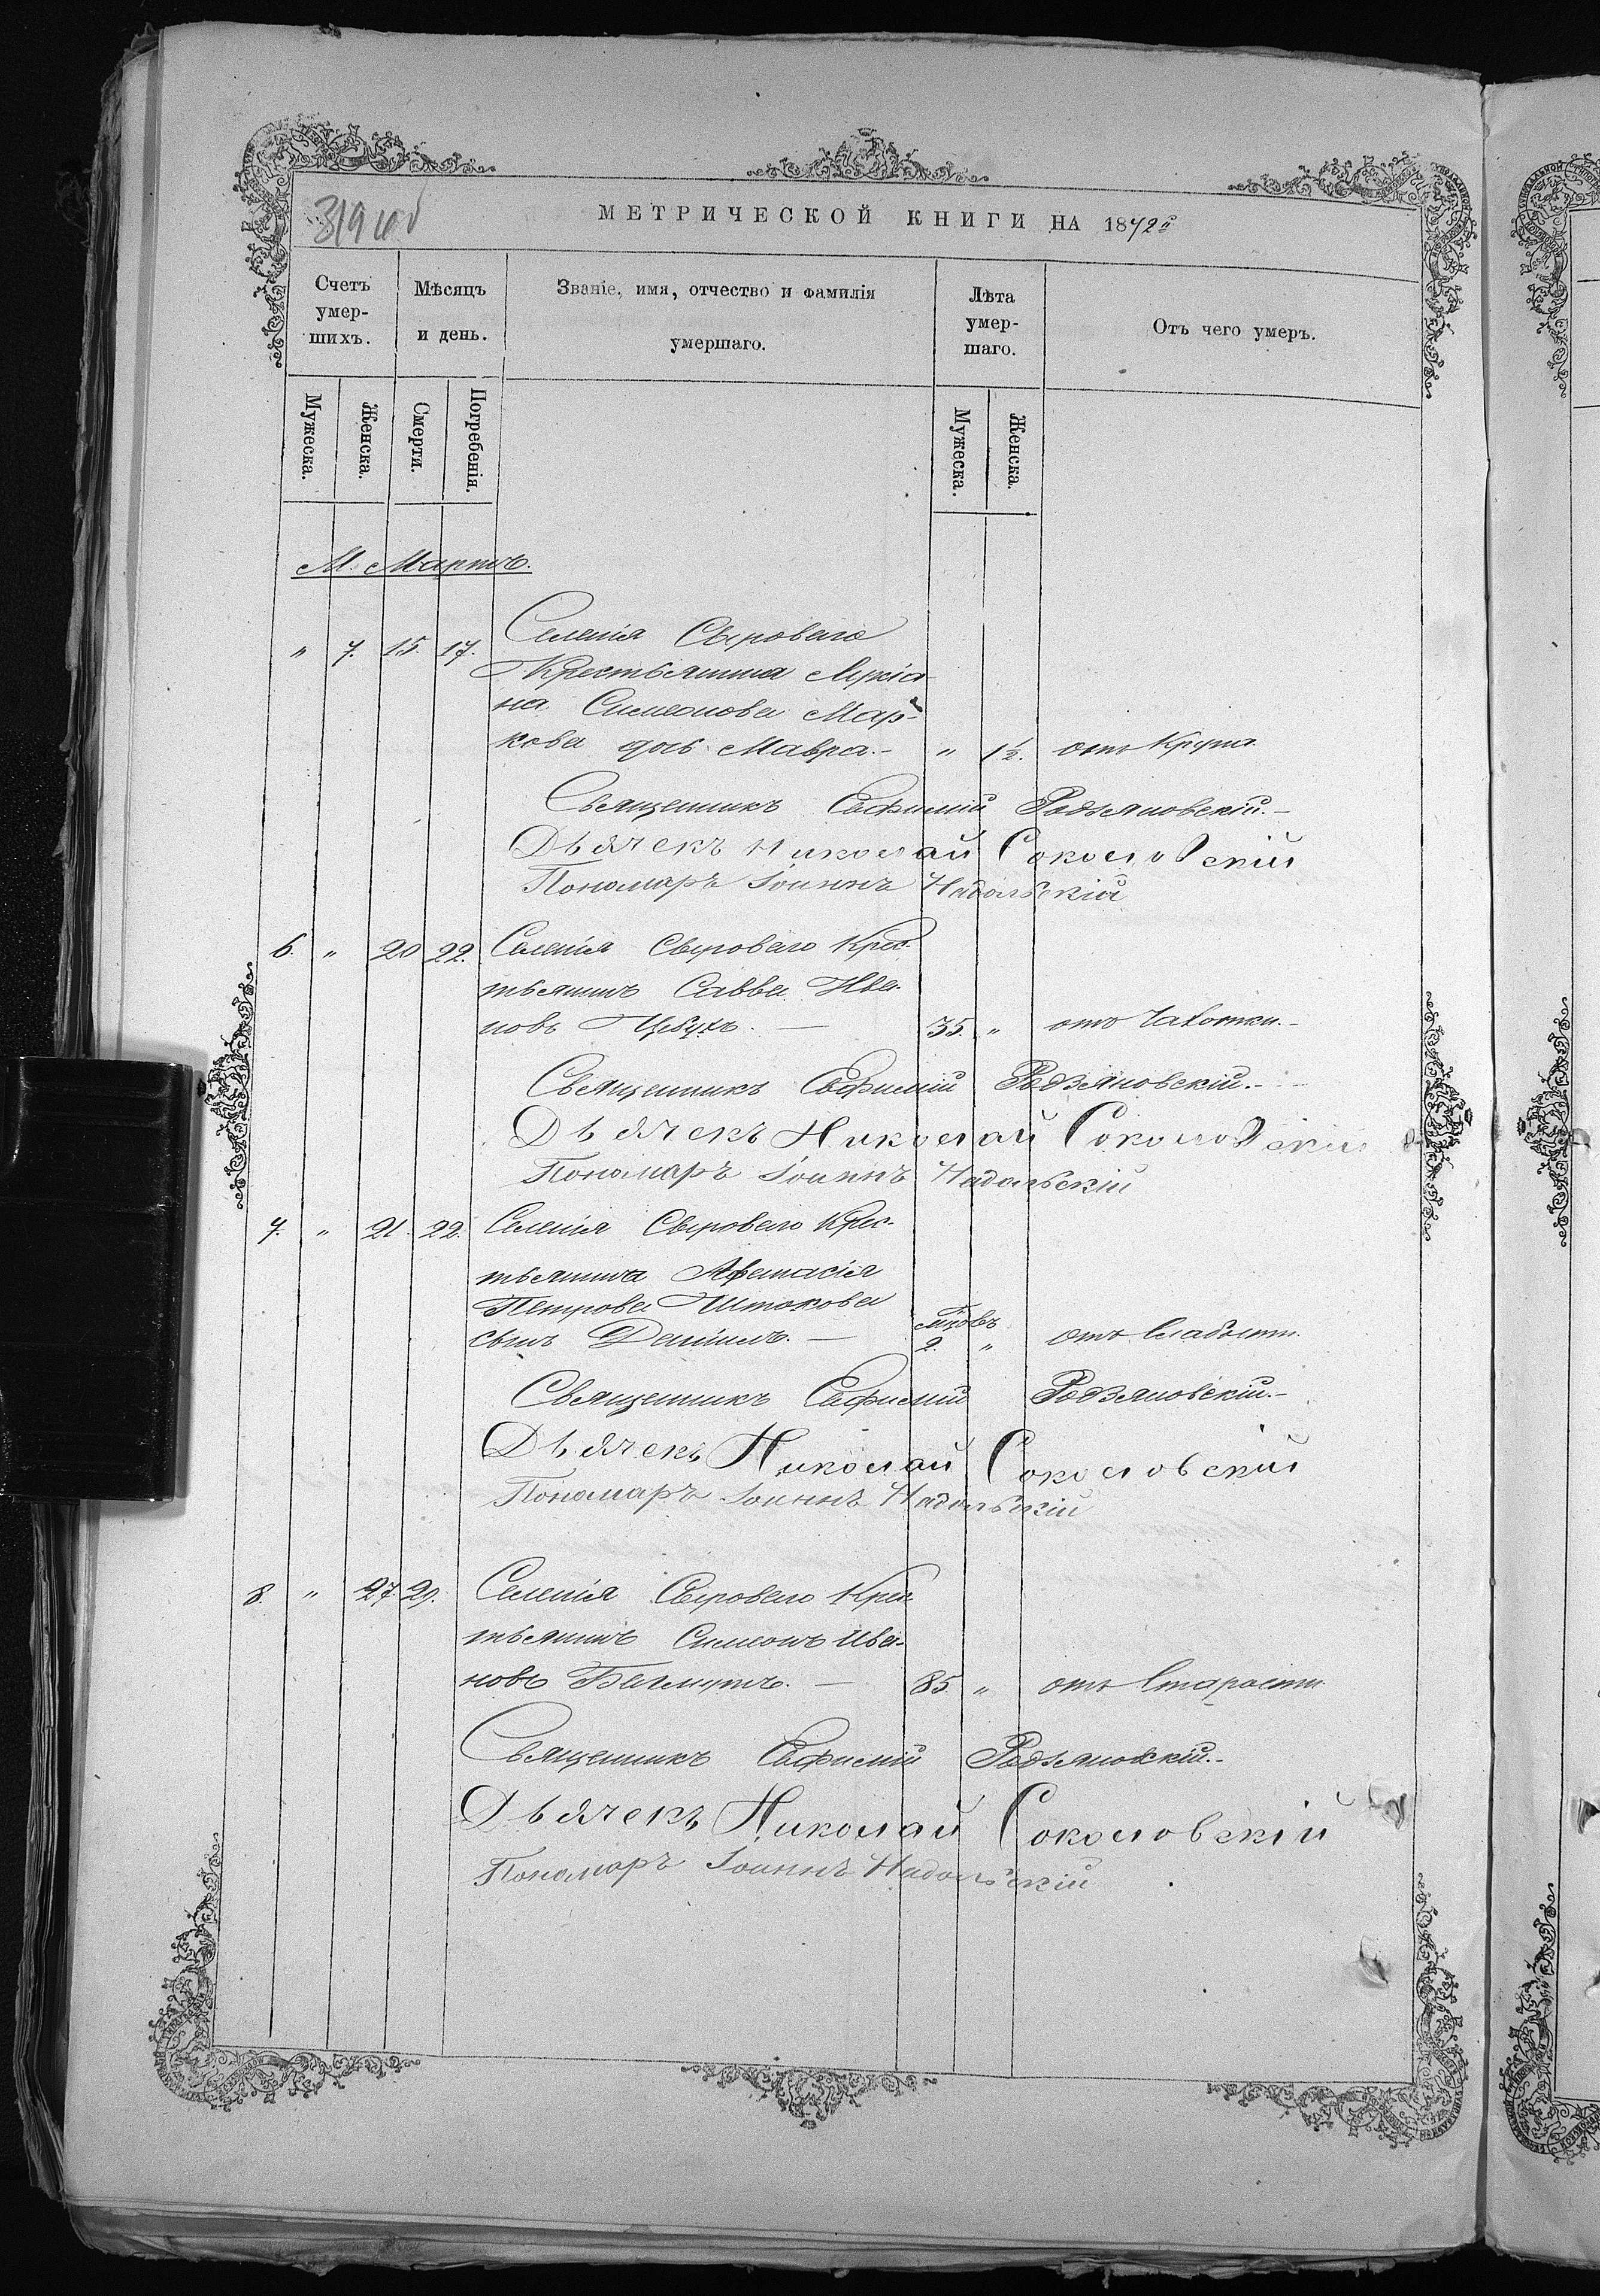 319 об
МЕТРИЧЕСКОЙ КНИГИ НА 1872й
Счетъ умер-шихъ.
Мѣсяцъ и день.
Званіе, имя, отчество и фамилія умершаго.
Лѣта умер-шаго.
Отъ чего умеръ.
Мужеска.
Женска.
Смерти.
Погребенія.
Мужеска.
Женска.
М. Мартъ.
" 7. 15. 17. Селенія Сыроваго
Крестьянина Лукіа-
на Симеонова Мар-
кова дочь Мавра.- " 1½. отъ Крупа
Священникъ Евфимій Родзяновскій.-
Дьячекъ Николай Соколовскій
Пономаръ Іоаннъ Надольскій
6. " 20 22. Селенія Сыроваго Крес-
тьянинъ Савва Ива-
новъ 35. " отъ Чахотки.-
Священникъ Евфимій Родзяновскій.-
Дьячекъ Николай Соколовскій
Пономаръ Іоаннъ Надольскій
7. " 21. 22. Селенія Сыроваго Крес-
тьянина Афанасія
Петрова Штокова мцовъ
сынъ Даніилъ. — 2. " отъ Слабости.
Священникъ Евфимій Родзяновскій.-
Дьячекъ Николай Соколовскій
Пономаръ Іоаннъ Надольскій
8. " 27. 29. Селенія Сыроваго Крес-
тьянинъ Симеонъ Ива-
новъ Багмутъ. — 85 " отъ Старости
Священникъ Евфимій Родзяновскій.-
Дьячекъ Николай Соколовскій
Пономаръ Іоаннъ Надольскій